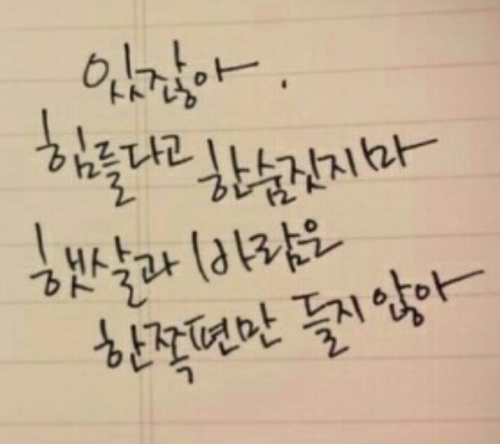 있잖아.
힘들다고 한숨짓지마
햇살과 바람은
한쪽편만 들지 않아